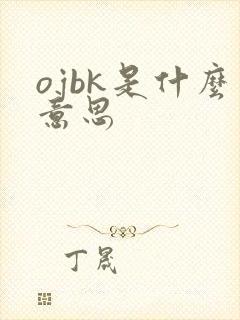 ojbk是什麼
意思
丁晟